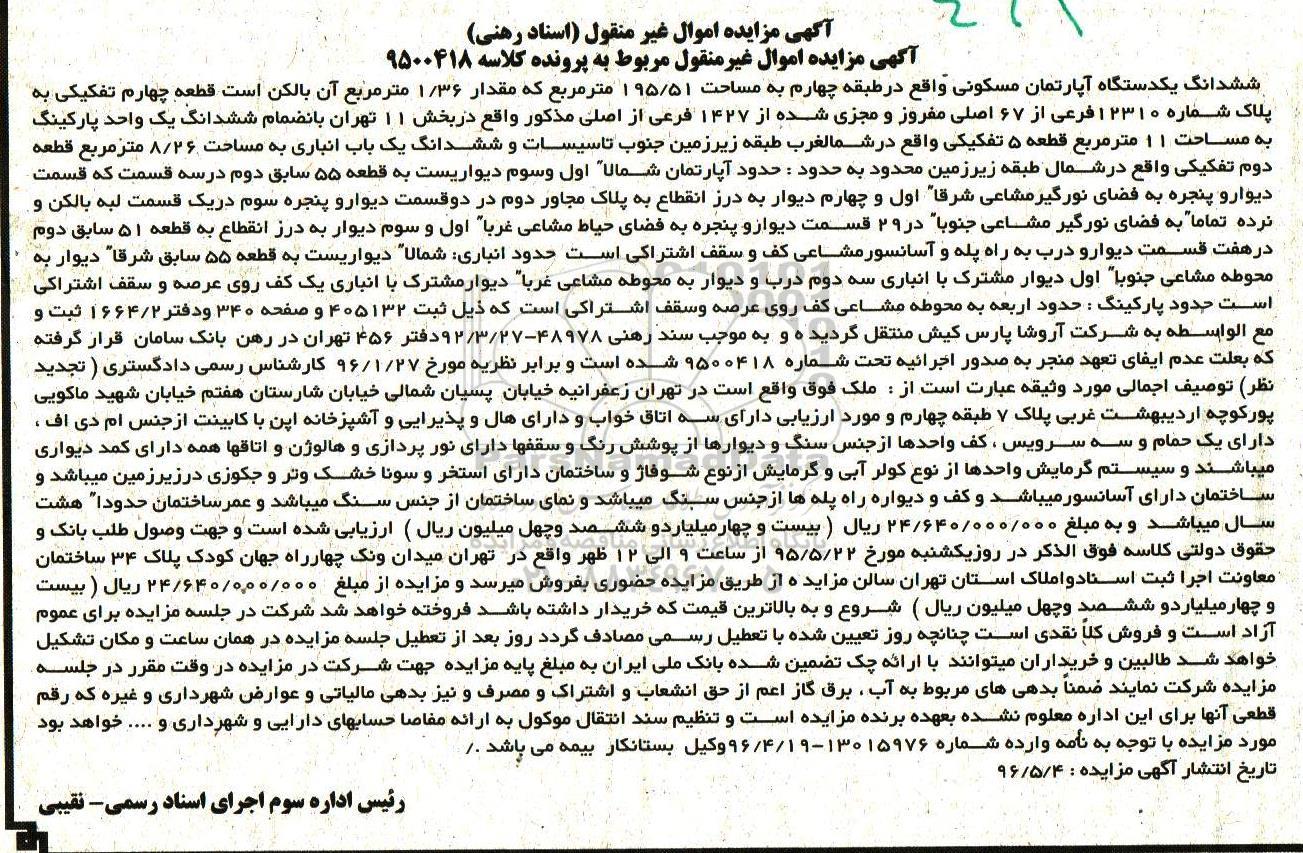 آگهی مزایده اموال غیر منقول (اسناد رهنی)
آگهی مزایده اموال غیرمنقول مربوط به پرونده کلاسه ۹۵۰۰۴۱۸
ششدانگ یکدستگاه آپارتمان مسکونی واقع درطبقه چهارم به مساحت ۱۹۵/۵۱ مترمربع که مقدار ۱/۳۶ مترمربع آن بالکن است قطعه چهارم تفکیکی به
پلاک شماره ۱۲۳۱۰فرعی از ۶۷ اصلی مفروز و مجزی شده از ۱۴۲۷ فرعی از اصلی مذکور واقع دربخش ۱۱ تهران بانضمام ششدانگ یک واحد پارکینگ
به مساحت ۱۱ مترمربع قطعه ۵ تفکیکی واقع درشمالغرب طبقه زیرزمین جنوب تاسیسات و ششدانگ یک باب انباری به مساحت ۸/۲۶ مترمربع قطعه
دوم تفکیکی واقع درشمال طبقه زیرزمین محدود به حدود : حدود آپارتمان شمالا" اول وسوم دیواریست به قطعه ۵۵ سابق دوم درسه قسمت که قسمت
دیوارو پنجره به فضای نورگیرمشاعی شرقا" اول و چهارم دیوار به درز انقطاع به پلاک مجاور دوم در دوقسمت دیوارو پنجره سوم دریک قسمت لبه بالکن و
نرده تماما"به فضای نورگیر مشاعی جنوبا" در۲۹ قسمت دیوارو پنجره به فضای حیاط مشاعی غربا" اول و سوم دیوار به درز انقطاع به قطعه ۵۱ سابق دوم
درهفت قسمت دیوارو درب به راه پله و آسانسورمشاعی کف و سقف اشتراکی است حدود انباری: شمالا" دیواریست به قطعه ۵۵ سابق شرقا" دیوار به
محوطه مشاعی جنوبا" اول دیوار مشترک با انباری سه دوم درب و دیوار به محوطه مشاعی غربا" دیوارمشترک با انباری یک کف روی عرصه و سقف اشتراکی
است حدود پارکینگ : حدود اربعه به محوطه مشاعی کف روی عرصه وسقف اشتراکی است که ذیل ثبت ۴۰۵۱۳۲ و صفحه ۳۴۰ ودفتر۱۶۶۴/۲ ثبت و
مع الواسطه به شرکت آروشا پارس کیش منتقل گردیده و به موجب سند رهنی ۴۸۹۷۸-۹۲/۳/۲۷دفتر ۴۵۶ تهران در رهن بانک سامان قرار گرفته
که بعلت عدم ایفای تعهد منجر به صدور اجرائیه تحت شماره ۹۵۰۰۴۱۸ شده است و برابر نظریه مورخ ۹۶/۱/۲۷ کارشناس رسمی دادگستری ( تجدید
نظر) توصیف اجمالی مورد وثیقه عبارت است از : ملک فوق واقع است در تهران زعفرانیه خیابان پسیان شمالی خیابان شارستان هفتم خیابان شهید ماکویی
پورکوچه اردیبهشت غربی پلاک ۷ طبقه چهارم و مورد ارزیابی دارای سه اتاق خواب و دارای هال و پذیرایی و آشپزخانه اپن با کابینت ازجنس ام دی اف ،
دارای یک حمام و سه سرویس ، کف واحدها ازجنس سنگ و دیوارها از پوشش رنگ و سقفها دارای نور پردازی و هالوژن و اتاقها همه دارای کمد دیواری
میباشند و سیستم گرمایش واحدها از نوع کولر آبی و گرمایش ازنوع شوفاژ و ساختمان دارای استخر و سونا خشک وتر و جکوزی درزیرزمین میباشد و
ساختمان دارای آسانسورمیباشد و کف و دیواره راه پله ها ازجنس سنگ میباشد و نمای ساختمان از جنس سنگ میباشد و عمرساختمان حدودا" هشت
سال میباشد و به مبلغ ۲۴/۶۴۰/۰۰۰/۰۰۰ ریال ( بیست و چهارمیلیاردو ششصد وچهل میلیون ریال ) ارزیابی شده است و جهت وصول طلب بانک و
حقوق دولتی کلاسه فوق الذکر در روزیکشنبه مورخ ۹۵/۵/۲۲ از ساعت ۹ الی ۱۲ ظهر واقع در تهران میدان ونک چهارراه جهان کودک پلاک ۳۴ ساختمان
معاونت اجرا ثبت اسنادواملاک استان تهران سالن مزایده از طریق مزایده حضوری بفروش میرسد و مزایده از مبلغ ۲۴/۶۴۰/۰۰۰/۰۰۰ ریال ( بیست
و چهارمیلیاردو ششصد وچهل میلیون ریال ) شروع و به بالاترین قیمت که خریدار داشته باشد فروخته خواهد شد شرکت در جلسه مزایده برای عموم
آزاد است و فروش کلاً نقدی است چنانچه روز تعیین شده با تعطیل رسمی مصادف گردد روز بعد از تعطیل جلسه مزایده در همان ساعت و مکان تشکیل
خواهد شد طالبین و خریداران میتوانند با ارائه چک تضمین شده بانک ملی ایران به مبلغ پایه مزایده جهت شرکت در مزایده در وقت مقرر در جلسه
مزایده شرکت نمایند ضمناً بدهی های مربوط به آب ، برق گاز اعم از حق انشعاب و اشتراک و مصرف و نیز بدهی مالیاتی و عوارض شهرداری و غیره که رقم
قطعی آنها برای این اداره معلوم نشده بعهده برنده مزایده است و تنظیم سند انتقال موکول به ارائه مفاصا حسابهای دارایی و شهرداری و .... خواهد بود
مورد مزایده با توجه به نامه وارده شماره ۱۳۰۱۵۹۷۶-۹۶/۴/۱۹وکیل بستانکار بیمه می باشد ./
تاریخ انتشار آگهی مزایده : ۹۶/۵/۴
رئیس اداره سوم اجرای اسناد رسمی- نقیبی